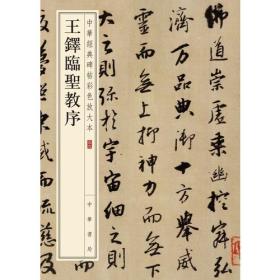 佛道崇虛乘幽控寂弘
濟萬品典御十方舉威
靈而無上抑神力而無下
大之則弥於宇宙細之則
中華經典碑帖彩色放大本
王鐸臨聖教序
中華書局
流慈及